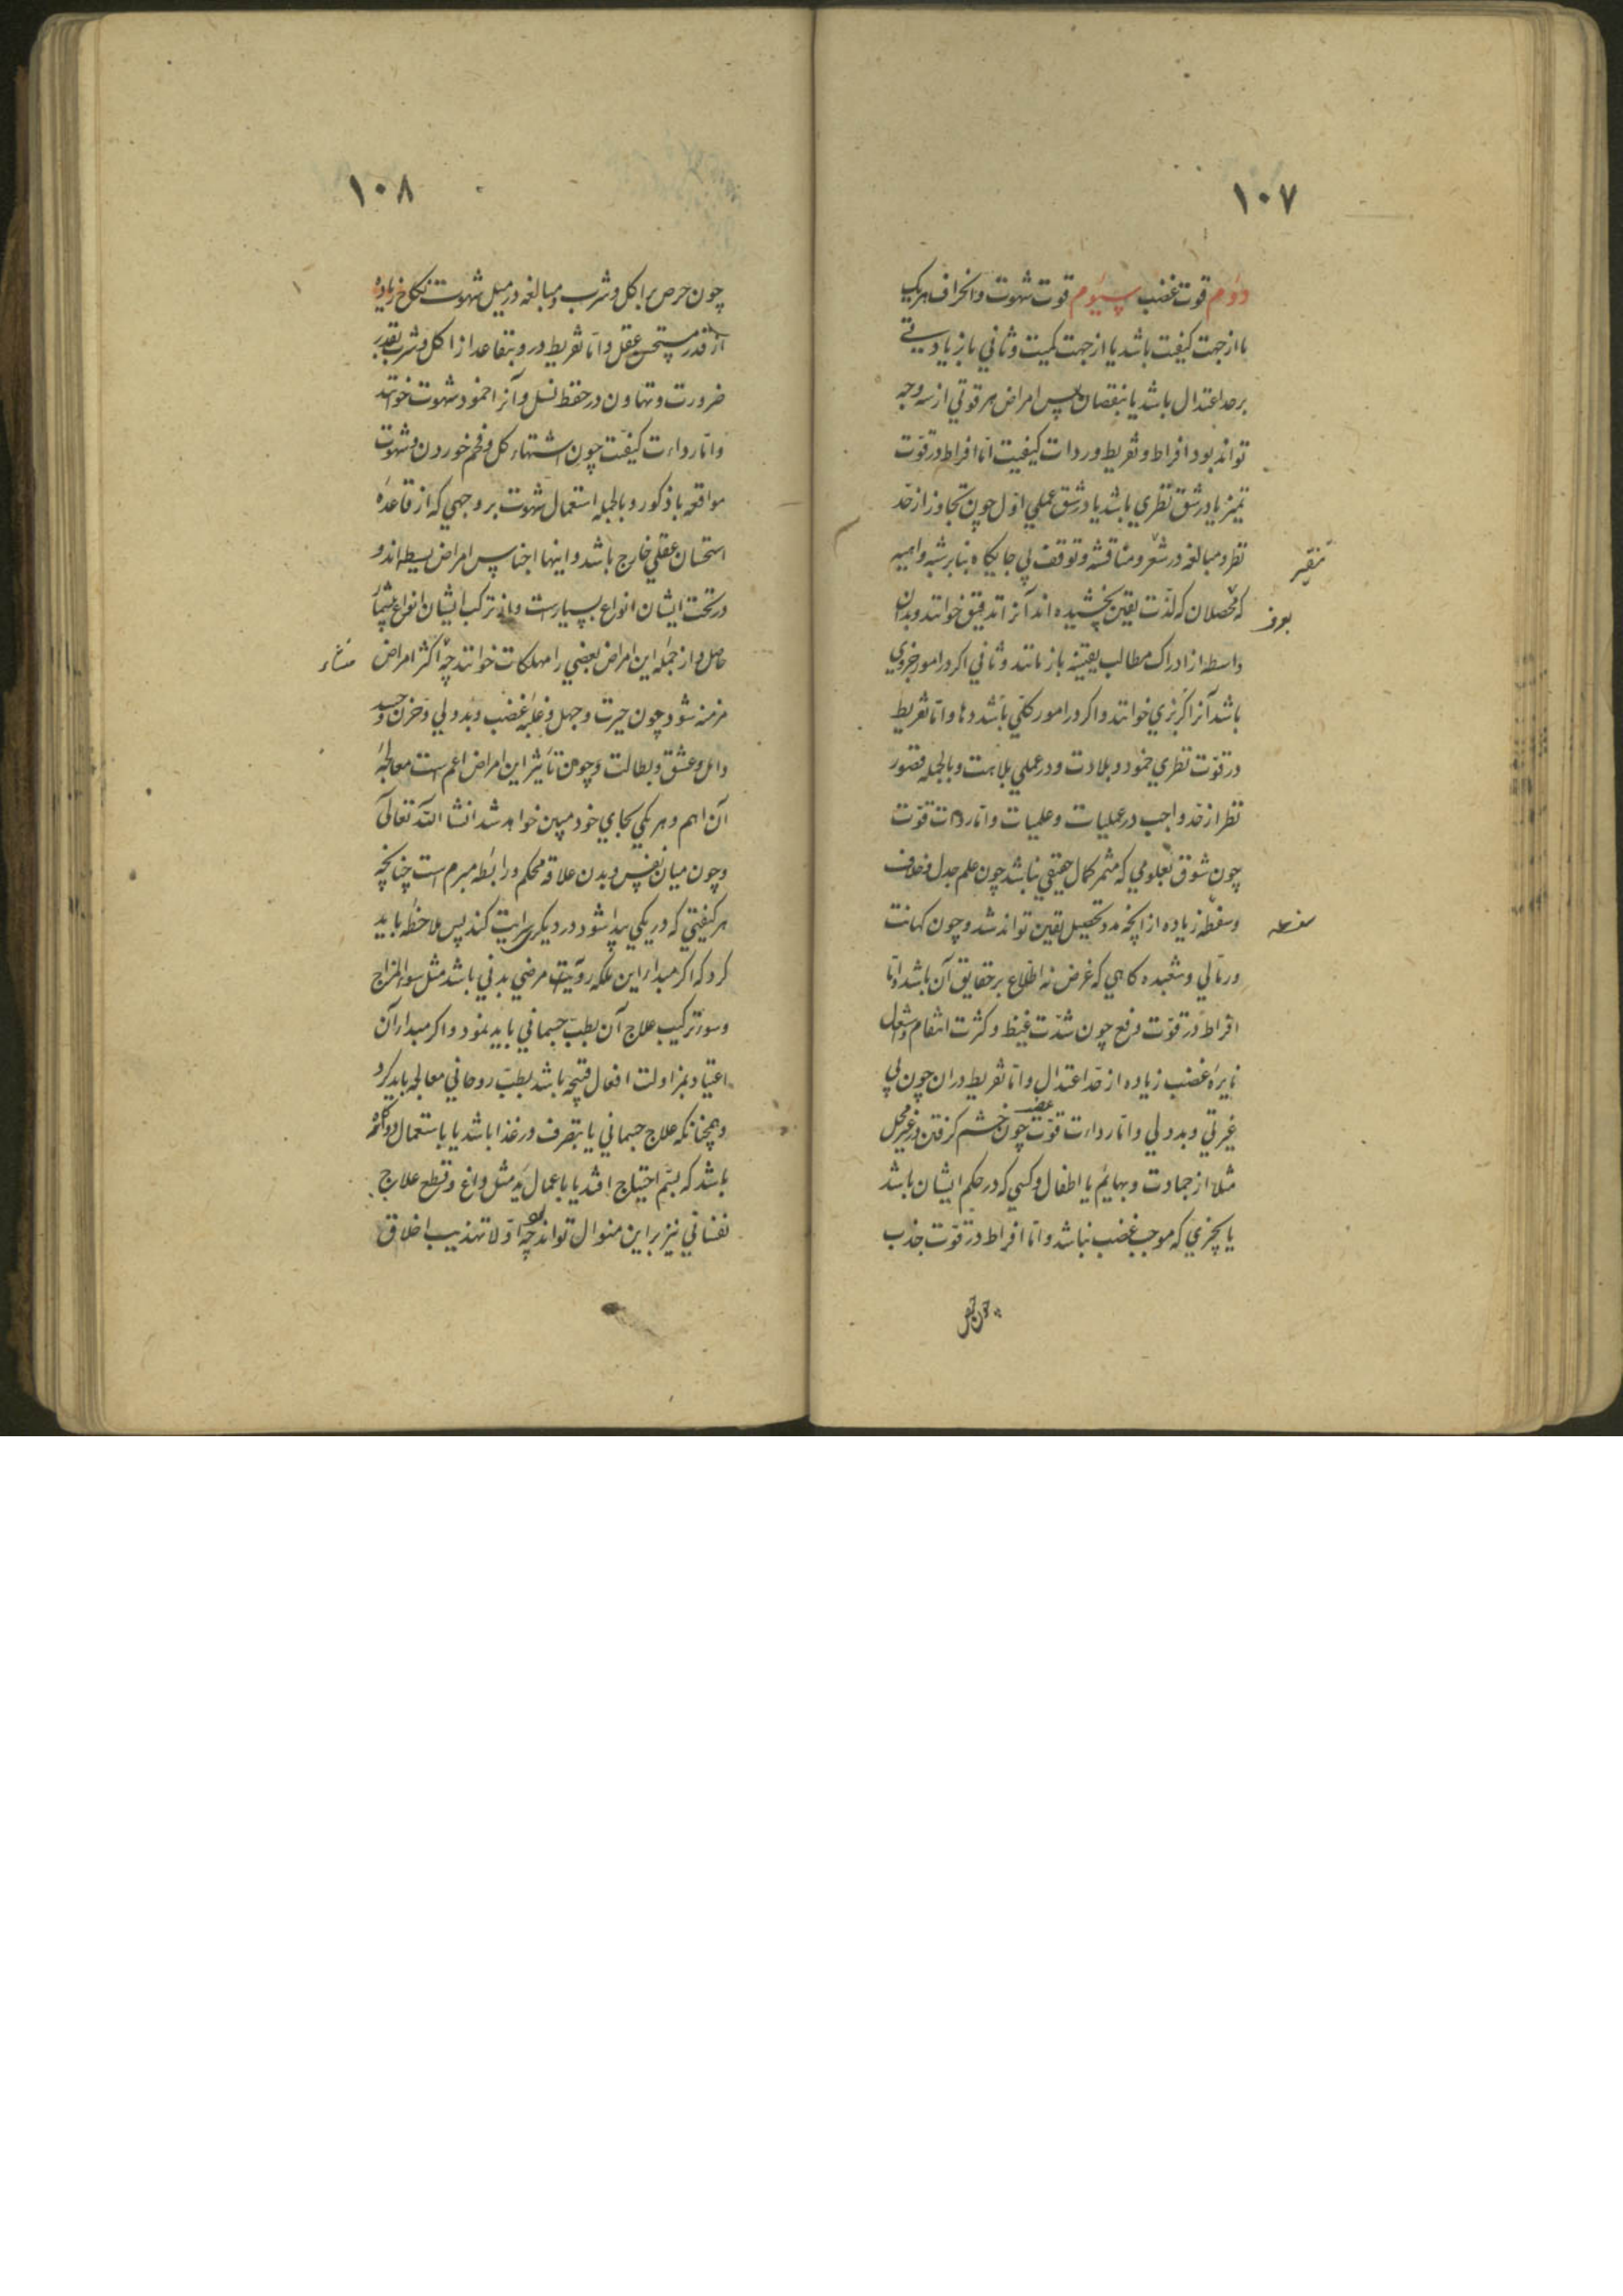 ۱۰۷
دوم قوت غضب سیوم قوت شهوت وانحراف هریک
یا از جهت کیفت باشد یا از جهت کمیت وثاني یا زیادتي
بر حد اعتدال باشد یا بنقصان پس امراض هر قوتي از سه وجه
تواند بود افراط وتفریط ورداءت کیفیت امّا افراط در قوّت
تمیز یا در شق نظري باشد یا در شق عملي اوّل چون تجاوز از حدّ
نظر ومبالغه در ومناقشه وتوقف بي جایکاه بنا بر شبه واهیه
تنقیر
که محصلان که لذّت یقین نچشیده اند آنرا تدقیق خوانند وبدان
واسطه از ادراک مطالب یقینه باز مانند وثاني اکر در امور جزوي
باشد آنرا کربزي خوانند واکر در امور کلّي باشد دها وامّا تفریط
در قوّت نظري خمود وبلادت ودر عملي بلاهت وبالجمله قصور
نظر از حدّ واجب در عملیات وعلمیات وامّا رداءت قوّت
چون شوق بعلومي که مثمر کمال حقیقي نباشد چون علم جدل وخلاف
وسفطه زیاده از آنچه مدد تحصیل یقین تواند شد وچون کهانت
ورمّالي وشعبده کاهي که غرض نه اطّلاع بر حقایق آن باشد وامّا
افراط در قوّت دفع چون شدّت غیظ وکثرت انتقام واشعال
نایره غضب زیاده از حدّ اعتدال وامّا تفریط در ان چون بي
غیرتي وبددلي وامّا رداءت قوّت غضب چون خشم کرفتن در غیر محل
مثلا از جمادت وبهایم یا اطفال وکسي که در حکم ایشان باشد
یا بچیزي که موجب غضب نباشد وامّا افراط در قوّت جذب
چون حرص
۱۰۸
چون حرص بر اکل وشرب ومبالغه در میل شهوت نکاح زیاده
از قدر مستحسن عقل وامّا تفریط در وتقاعد از اکل وشرب بقدر
ضرورت وتهاون در حفظ نسل وآنرا خمود شهوت خوانند
وامّا رداءت کیفیّت چون اشتهاء کل وفحم خوردن وشهوت
مواقعه با ذکور وبالجمله استعمال شهوت بر وجهي که از قاعده
استحسان عقلي خارج باشد واینها اجناس امراض بسیطه اند و
در تحت ایشان انواع بسیارست واز ترکب ایشان انواع بیشمار
حاصل واز جمله این امراض بعضي را مهلکات خوانند چه اکثر امراض
منشاء
مزمنه شود چون حیرت وجهل وغلبه غضب وبددلي وحزن وحسد
وامل وعشق وبطالت وچون تأثیر این امراض اعم است معالجه
آن اهم وهر یکي بجاي خود مبین خواهد شد انشا اللّه تعالي
وچون میان نفس وبدن علاقه محکم ورابطه مبرم است چنانچه
هر کیفیتي که در یکي پیدا شود در دیکري سرایت کند پس ملاحظه باید
کرد که اکر مبداء این ملکه ردیّت مرضي بدني باشد مثل سوء المزاج
وسوء ترکیب علاج آن بطبّ جسماني باید نمود واکر مبدا آن
اعتیاد بمزاولت افعال قبیحه باشد بطبّ روحاني معالجه باید کرد
وهمچنانکه علاج جسماني یا بتصرف در غذا باشد یا باستعمال دوا وکاه
باشد که بسّم احتیاج افتد یا باعمال ید مثل داغ وقطع علاج
نفساني نیز بر این منوال تواند بود چه اوّلا تهذیب اخلاق